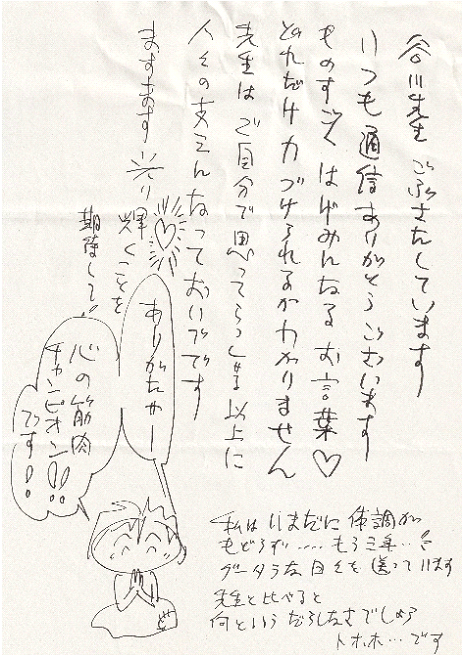 谷川先生 ごぶさたしています
いつも通信ありがとうございます
ものすごく はげみになる お言葉♡
どれだけ力づけられるかわかりません
先生は ご自分で思ってらっしゃる以上に
人々の支えになっておいでです
ますます 光り輝くことを
期待して
ありがたやー
心の筋肉
チャンピオン!!
です!!
私は いまだに 体調が
もどらず…… もう三年…
グータラな日々を送っています
先生と比べると
何という だらしなさでしょう
トホホ…です